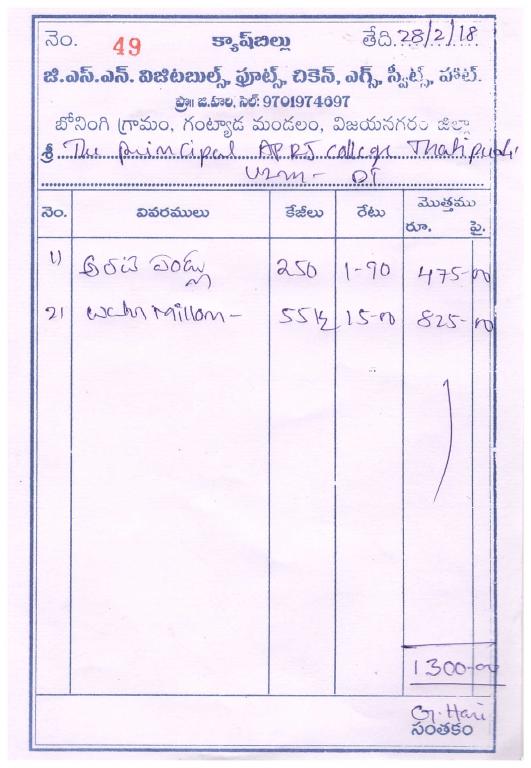 నెం. 49 క్యాష్‌బిల్లు తేది. 28/2/18
జి.ఎస్.ఎన్. విజిటబుల్స్, ఫ్రూట్స్, చికెన్, ఎగ్స్, స్వీట్స్, హాట్.
ప్రొ॥ జి.హరి, సెల్: 9701974697
బోనింగి గ్రామం, గంట్యాడ మండలం, విజయనగరం జిల్లా
శ్రీ The principal APRJ college Thatipudi
VZM - DT
నెం. వివరములు కేజీలు రేటు మొత్తము
రూ. పై.
1) అరటి పండ్లు 250 1-90 475-00
2) 55 ½ 15-00 825-00
1300-00
G. Hari
సంతకం